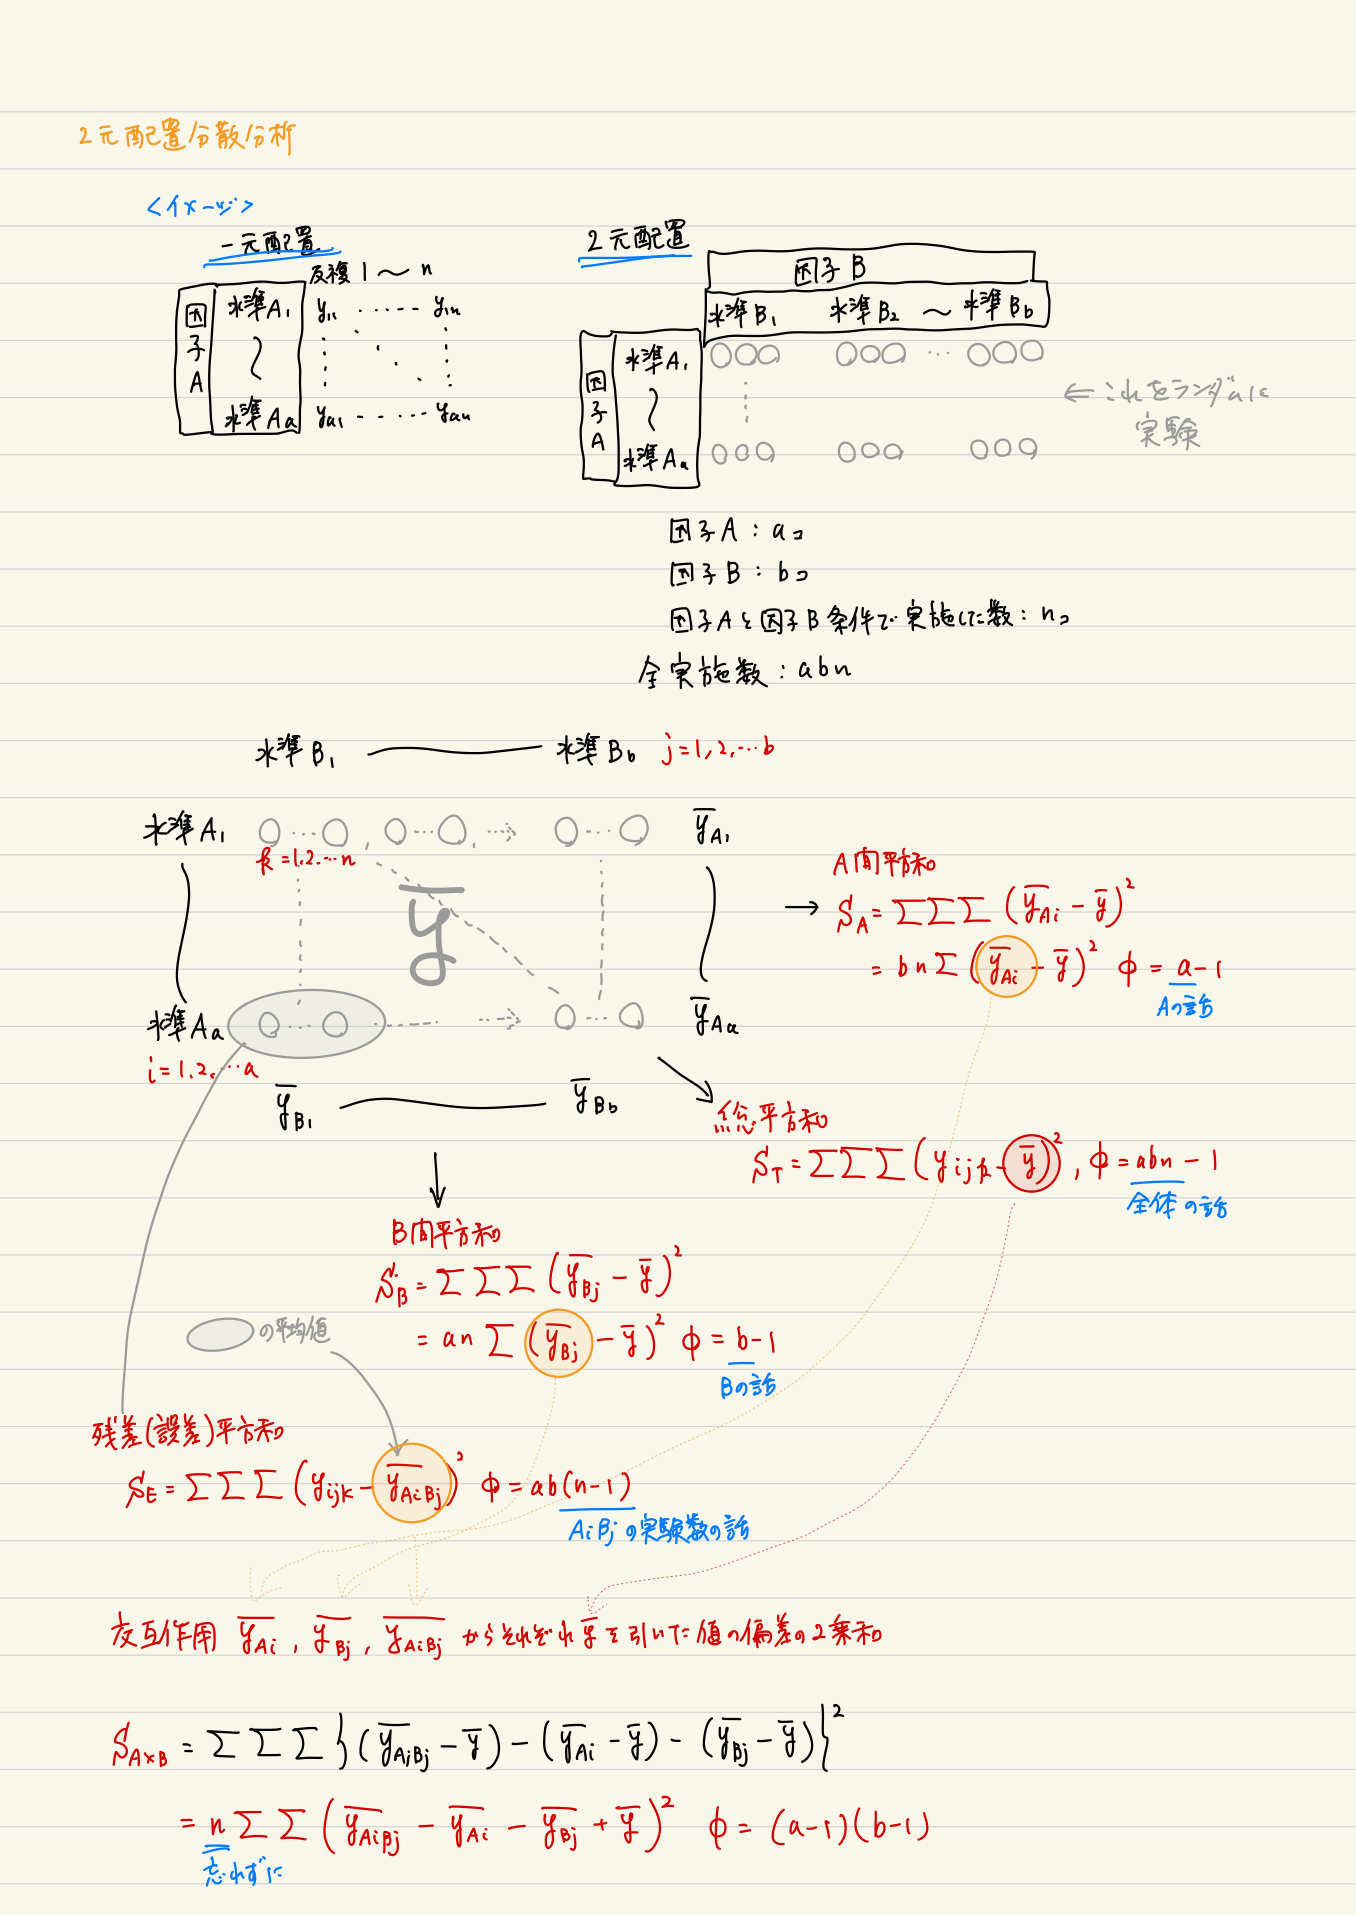 2元配置分散分析
<イメージ>
一元配置
反複 1 〜 n
因子A
水準A₁ y₁₁ ‥‥‥ y₁ₙ
〜
水準Aa ya₁ ‥‥‥ yan
2元配置
因子 B
水準B₁ 水準B₂ 〜 水準Bb
因子A
水準A₁ 〇〇〇 〇〇〇 … 〇〇〇
〜
水準Aa 〇〇〇 〇〇〇 〇〇〇
← これをランダムに
実験
因子A : aコ
因子B : bコ
因子Aと因子B条件で実施した数 : nコ
全実施数 : abn
水準B₁ 〜 水準Bb j=1,2,…b
水準A₁ 〇…〇, 〇…〇, …→ 〇…〇 y̅A₁
k=1,2,…n
y̅
水準Aa 〇…〇 …→ 〇…〇 y̅Aa
i=1,2,…a
y̅B₁ 〜 y̅Bb
→ A間平方和
S_A = ΣΣΣ (y̅Ai − y̅)²
= bnΣ (y̅Ai − y̅)² φ = a−1
Aの話
総平方和
S_T = ΣΣΣ (yijk − y̅)², φ = abn − 1
全体の話
B間平方和
S_B = ΣΣΣ (y̅Bj − y̅)²
= anΣ (y̅Bj − y̅)² φ = b−1
Bの話
の平均値
残差(誤差)平方和
S_E = ΣΣΣ (yijk − y̅AiBj)² φ = ab(n−1)
AiBjの実験数の話
交互作用 y̅Ai, y̅Bj, y̅AiBj からそれぞれy̅を引いた値の偏差の2乗和
S_A×B = ΣΣΣ {(y̅AiBj − y̅) − (y̅Ai − y̅) − (y̅Bj − y̅)}²
= nΣΣ (y̅AiBj − y̅Ai − y̅Bj + y̅)² φ = (a−1)(b−1)
忘れずに